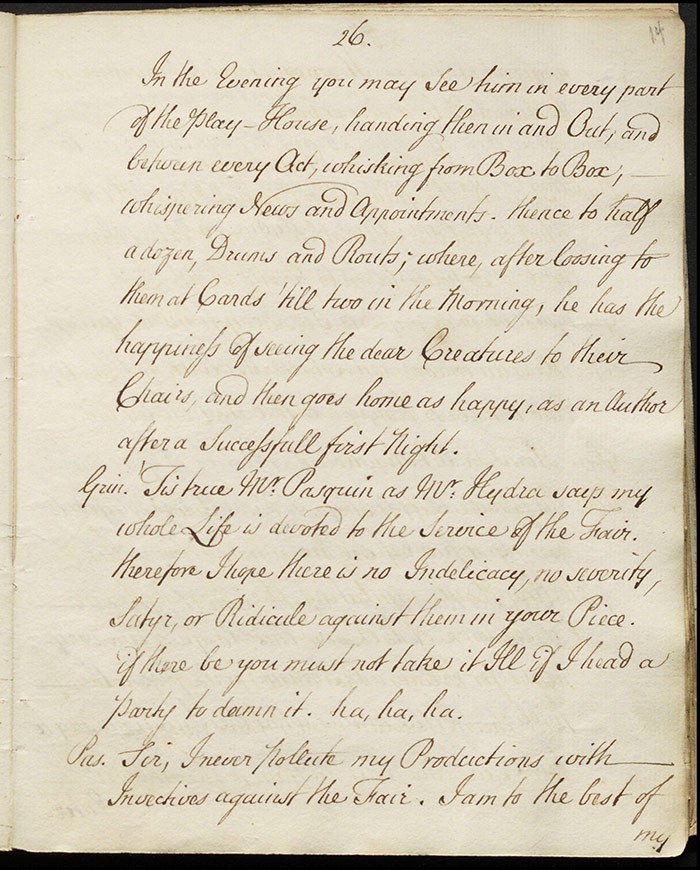 26.
14
In the Evening you may See him in every part
of the Play-House, handing them in and Out, and
between every Act, whisking from Box to Box, —
whispering News and Appointments. thence to half
a dozen, Drums and Routs; where, after loosing to
them at Cards 'till two in the Morning, he has the
happiness of seeing the dear Creatures to their
Chairs, and then goes home as happy, as an Author
after a Successfull first Night.
Grin. 'Tis true Mr. Pasquin as Mr. Hydra says my
whole Life is devoted to the Service of the Fair.
therefore I hope there is no Indelicacy, no severity,
Satyr, or Ridicule against them in your Piece.
if there be you must not take it Ill if I head a
Party to damn it. ha, ha, ha.
Pas. Sir, I never pollute my Productions with —
Invectives against the Fair. I am to the best of
my